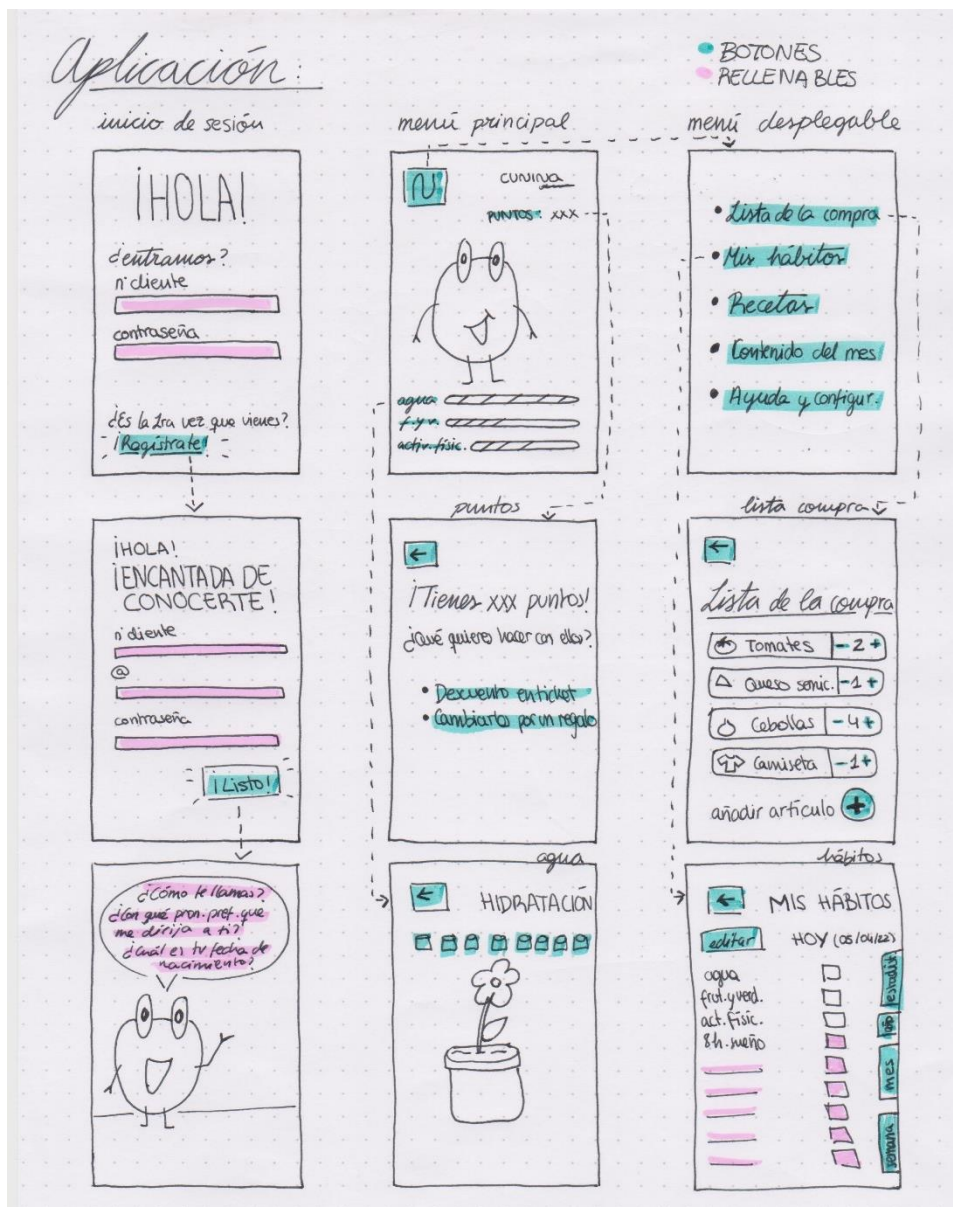 Aplicación:
BOTONES
RELLENABLES
inicio de sesión
¡HOLA!
¿entramos?
nº cliente
contraseña
¿Es la 1ra vez que vienes?
¡Regístrate!
¡HOLA!
¡ENCANTADA DE
CONOCERTE!
nº cliente
@
contraseña
¡Listo!
¿Cómo te llamas?
¿Con qué pron. pref. que
me dirija a ti?
¿Cuál es tu fecha de
nacimiento?
menú principal
N
CUNINA
PUNTOS: XXX
agua
f. y v.
activ. físic.
puntos
←
¡Tienes xxx puntos!
¿Qué quieres hacer con ellos?
• Descuento en ticket
• Cambiarlos por un regalo
agua
←
HIDRATACIÓN
menú desplegable
• Lista de la compra
• Mis hábitos
• Recetas
• Contenido del mes
• Ayuda y configur.
lista compra
←
Lista de la compra
Tomates - 2 +
Queso semic. - 1 +
Cebollas - 4 +
Camiseta - 1 +
añadir artículo +
hábitos
← MIS HÁBITOS
editar HOY (05/04/22)
agua
frut. y verd.
act. físic.
8h. sueño
estadís
año
mes
semana